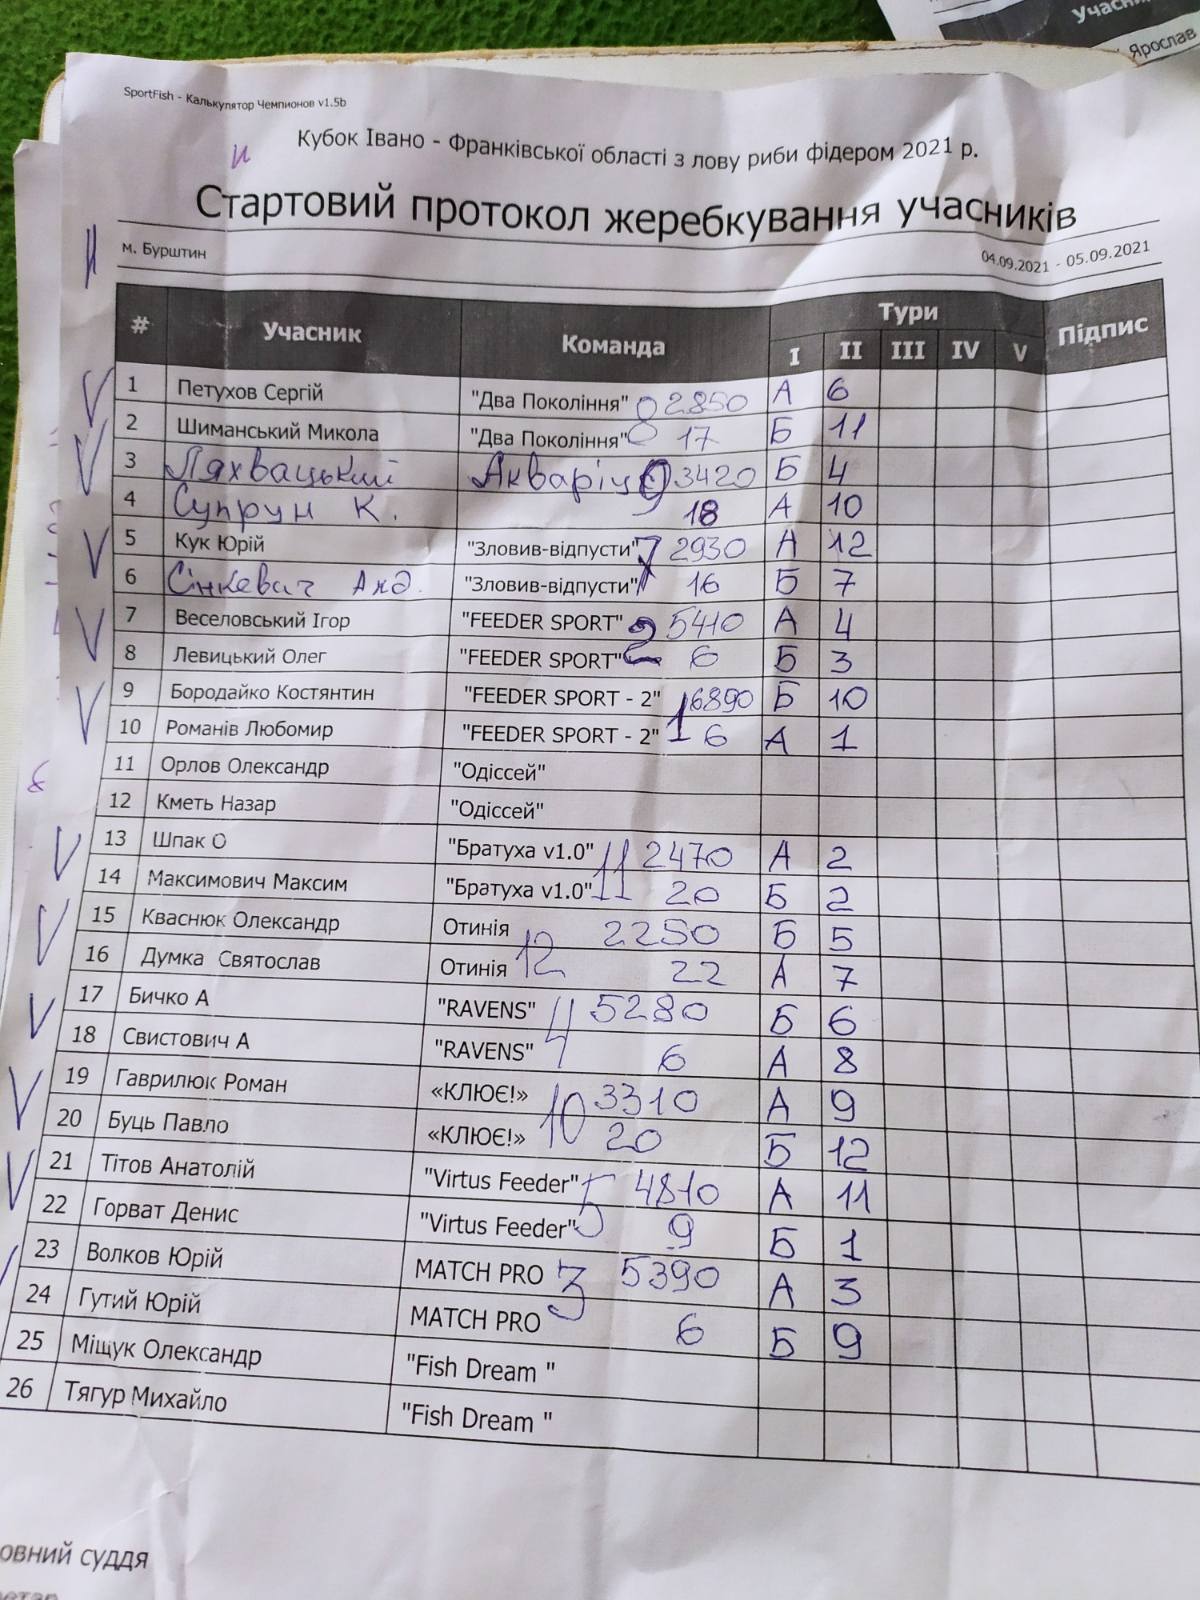 Учасн
Ярослав
SportFish - Калькулятор Чемпионов v1.5b
Кубок Івано - Франківської області з лову риби фідером 2021 р.
и
Стартовий протокол жеребкування учасників
и
м. Бурштин 04.09.2021 - 05.09.2021
# Учасник Команда Тури Підпис
I II III IV V
1 Петухов Сергій "Два Покоління" 8 2850 А 6
2 Шиманський Микола "Два Покоління" 17 Б 11
3 Ляхвацький Акваріус 9 3420 Б 4
4 Супрун К. 18 А 10
5 Кук Юрій "Зловив-відпусти" 7 2930 А 12
6 Сінкевич Анд. "Зловив-відпусти" 16 Б 7
7 Веселовський Ігор "FEEDER SPORT" 2 5410 А 4
8 Левицький Олег "FEEDER SPORT" 6 Б 3
9 Бородайко Костянтин "FEEDER SPORT - 2" 1 6890 Б 10
10 Романів Любомир "FEEDER SPORT - 2" 6 А 1
11 Орлов Олександр "Одіссей"
12 Кметь Назар "Одіссей"
13 Шпак О "Братуха v1.0" 11 2470 А 2
14 Максимович Максим "Братуха v1.0" 20 Б 2
15 Кваснюк Олександр Отинія 12 2250 Б 5
16 Думка Святослав Отинія 22 А 7
17 Бичко А "RAVENS" 4 5280 Б 6
18 Свистович А "RAVENS" 6 А 8
19 Гаврилюк Роман «КЛЮЄ!» 10 3310 А 9
20 Буць Павло «КЛЮЄ!» 20 Б 12
21 Тітов Анатолій "Virtus Feeder" 5 4810 А 11
22 Горват Денис "Virtus Feeder" 9 Б 1
23 Волков Юрій MATCH PRO 3 5390 А 3
24 Гутий Юрій MATCH PRO 6 Б 9
25 Міщук Олександр "Fish Dream "
26 Тягур Михайло "Fish Dream "
овний суддя